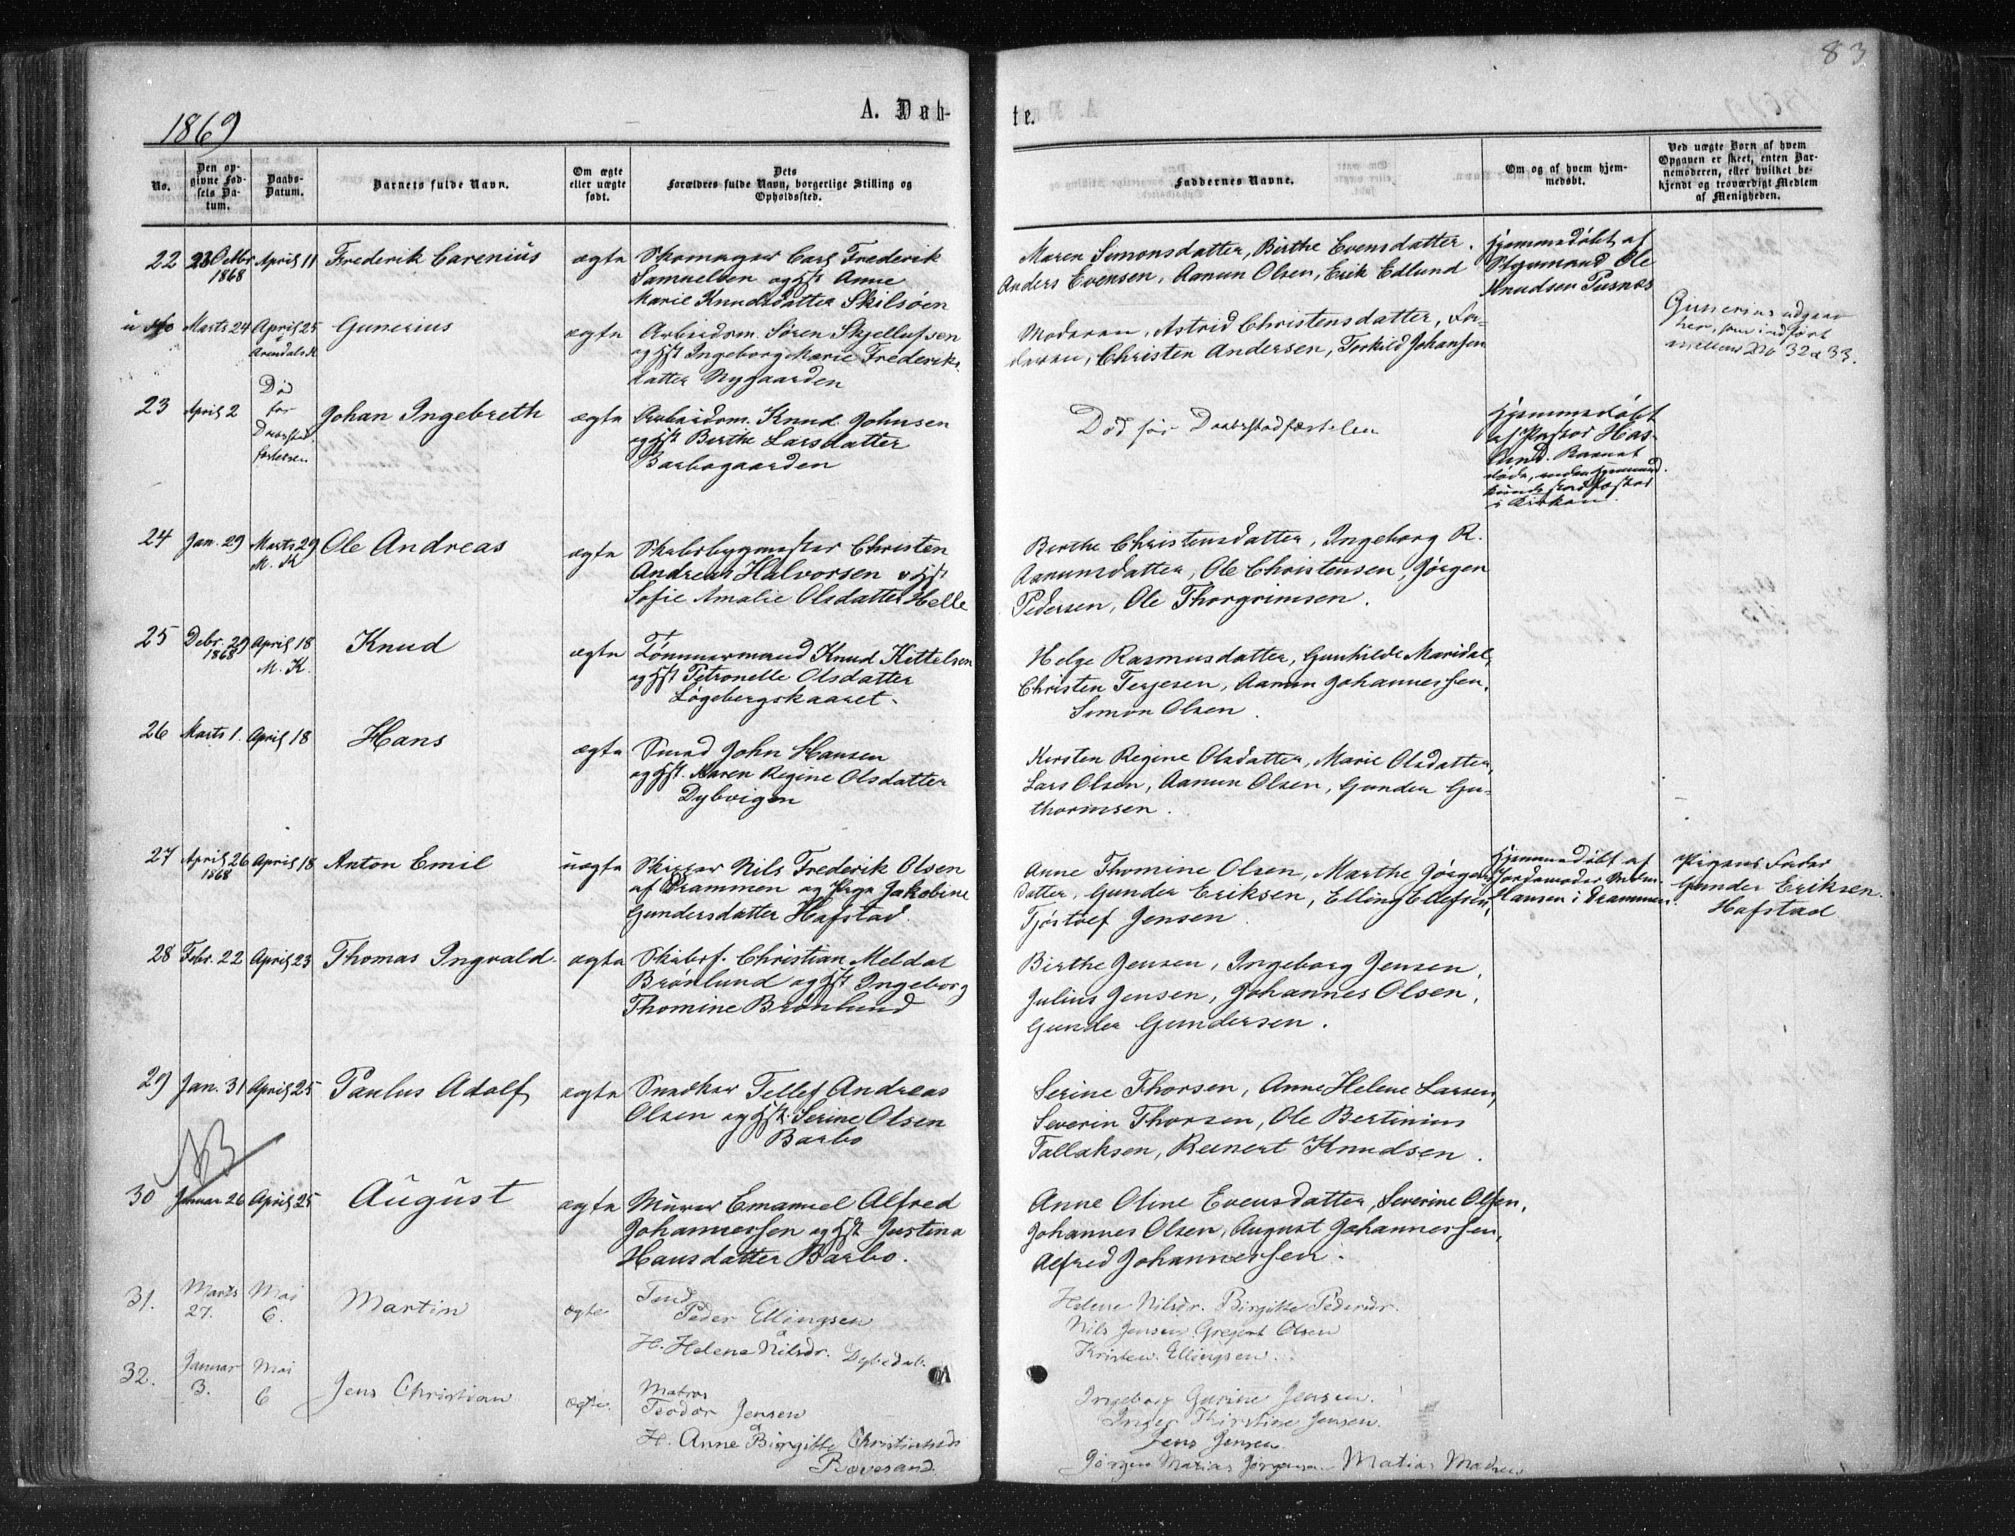 83
1869
A. Døb-
te.
No.
Den op-
givne Fød-
sels Da-
tum.
Daabs-
Datum.
Barnets fulde Navn.
Om ægte
eller uægte
født.
Dets
Forældres fulde Navn, borgerlige Stilling og
Opholdssted.
Faddernes Navne.
Om og af hvem hjem-
medøbt.
Ved uægte Børn af hvem
Opgaven er skeet, enten Bar-
nemoderen, eller hvilket be-
kjendt og troværdigt Medlem
af Menigheden.
22 23 Octbr 1868 April 11 Frederik Carenius ægte
Skomager Carl Frederik
Samuelsen og Hst Anne
Marie Knudsdatter Skilsøen
Maren Simonsdatter, Birthe Evensdatter.
Anders Evensen, Aanun Olsen, Erik Edlund
Hjemmedøbt af
Styrmand Ole
Knudsen Pusnes
u No Marts 24 April 25 Arendals K Gunerius ægte
Arbeidsm. Søren Skjellufsen
og Hst Ingeborg Marie Frederiks-
datter Nygaarden
Moderen, Astrid Christensdatter, Fa-
deren, Christen Andersen, Torkild Johansen
Gunerius udgaar
her, som indført
mellem No 32 & 33.
23 April 2 Død for Daabstad fæstelsen Johan Ingebreth ægte
Arbeidsm. Knud Johnsen
og Hst Berthe Larsdatter
Barbogaarden
Død før Daabstadfæstelsen
Hjemmedøbt
af Pastor Has-
lund. Barnet
døde, inden hjemmed.
kunde stadfæstes
i Kirken.
24 Jan. 29 Marts 29 M. K Ole Andreas ægte
Skibsbygmester Christen
Andreas Halvorsen og Hst
Sofie Amalie Olsdatter Helle
Berthe Christensdatter, Ingeborg R.
Aanunsdatter, Ole Christensen, Jørgen
Pedersen, Ole Thorgrimsen.
25 Debr. 29 1868 April 18 M. K. Knud ægte
Tømmermand Knud Kittelsen
og Hst Petronelle Olsdatter
Løgebergskaaret.
Helge Rasmusdatter, Gunhilde Maridal,
Christen Terjesen, Aanun Johannessen,
Simon Olsen.
26 Marts 1. April 18 Hans ægte
Smed John Hansen
og Hst. Maren Regine Olsdatter
Dybvigen
Kirsten Regine Olsdatter, Marie Olsdatter,
Lars Olsen, Aanun Olsen, Gunder Gu-
thormsen.
27 April 26 1868 April 18 Anton Emil uægte
Skipper Nils Frederik Olsen
af Drammen og Pige Jakobine
Gundersdatter Hafstad.
Anne Thomine Olsen, Marthe Jørgens-
datter, Gunder Eriksen, Elling Ellefsen,
Tjøstolf Jensen.
Hjemmedøbt af
Jordemoder
Hansen i Drammen.
Pigens Fader
Gunder Eriksen
Hafstad
28 Febr. 22 April 23 Thomas Ingvald ægte
Skibsf. Christian Meldal
Brønlund og Hst Ingeborg
Thomine Brønlund
Birthe Jensen, Ingeborg Jensen,
Julius Jensen, Johannes Olsen,
Gunder Gundersen.
29 Jan. 31 April 25 Paulus Adolf ægte
Snedker Tellef Andreas
Olsen og Hst. Serine Olsen
Barbo
Serine Thorsen, Anne Helene Larsen,
Severin Thorsen, Ole Bertinius
Tallaksen, Reinert Knudsen.
NB
30 Januar 26 April 25 August ægte
Murer Emanuel Alfred
Johannessen og Hst Justina
Hansdatter Barbo.
Anne Oline Evensdatter, Severine Olsen,
Johannes Olsen, August Johannessen,
Alfred Johannessen.
31. Marts 27. Mai 6. Martin ægte
Peder Ellingsen
H. Helene Nilsdr. Dybedal.
Helene Nilsdr. Birgitte Pedersdr.
Nils Jensen, Gregert Olsen
Kristen Ellingsen.
32. Januar 3. Mai 6 Jens Christian ægte.
Matros
Teodor Jensen
H. Anne Birgitte Christiansd:
Revesand
Ingeborg Gurine Jensen.
Inger Kirstine Jensen.
Jens Jensen
Jørgen Matias Jørgensen Matias Madsen